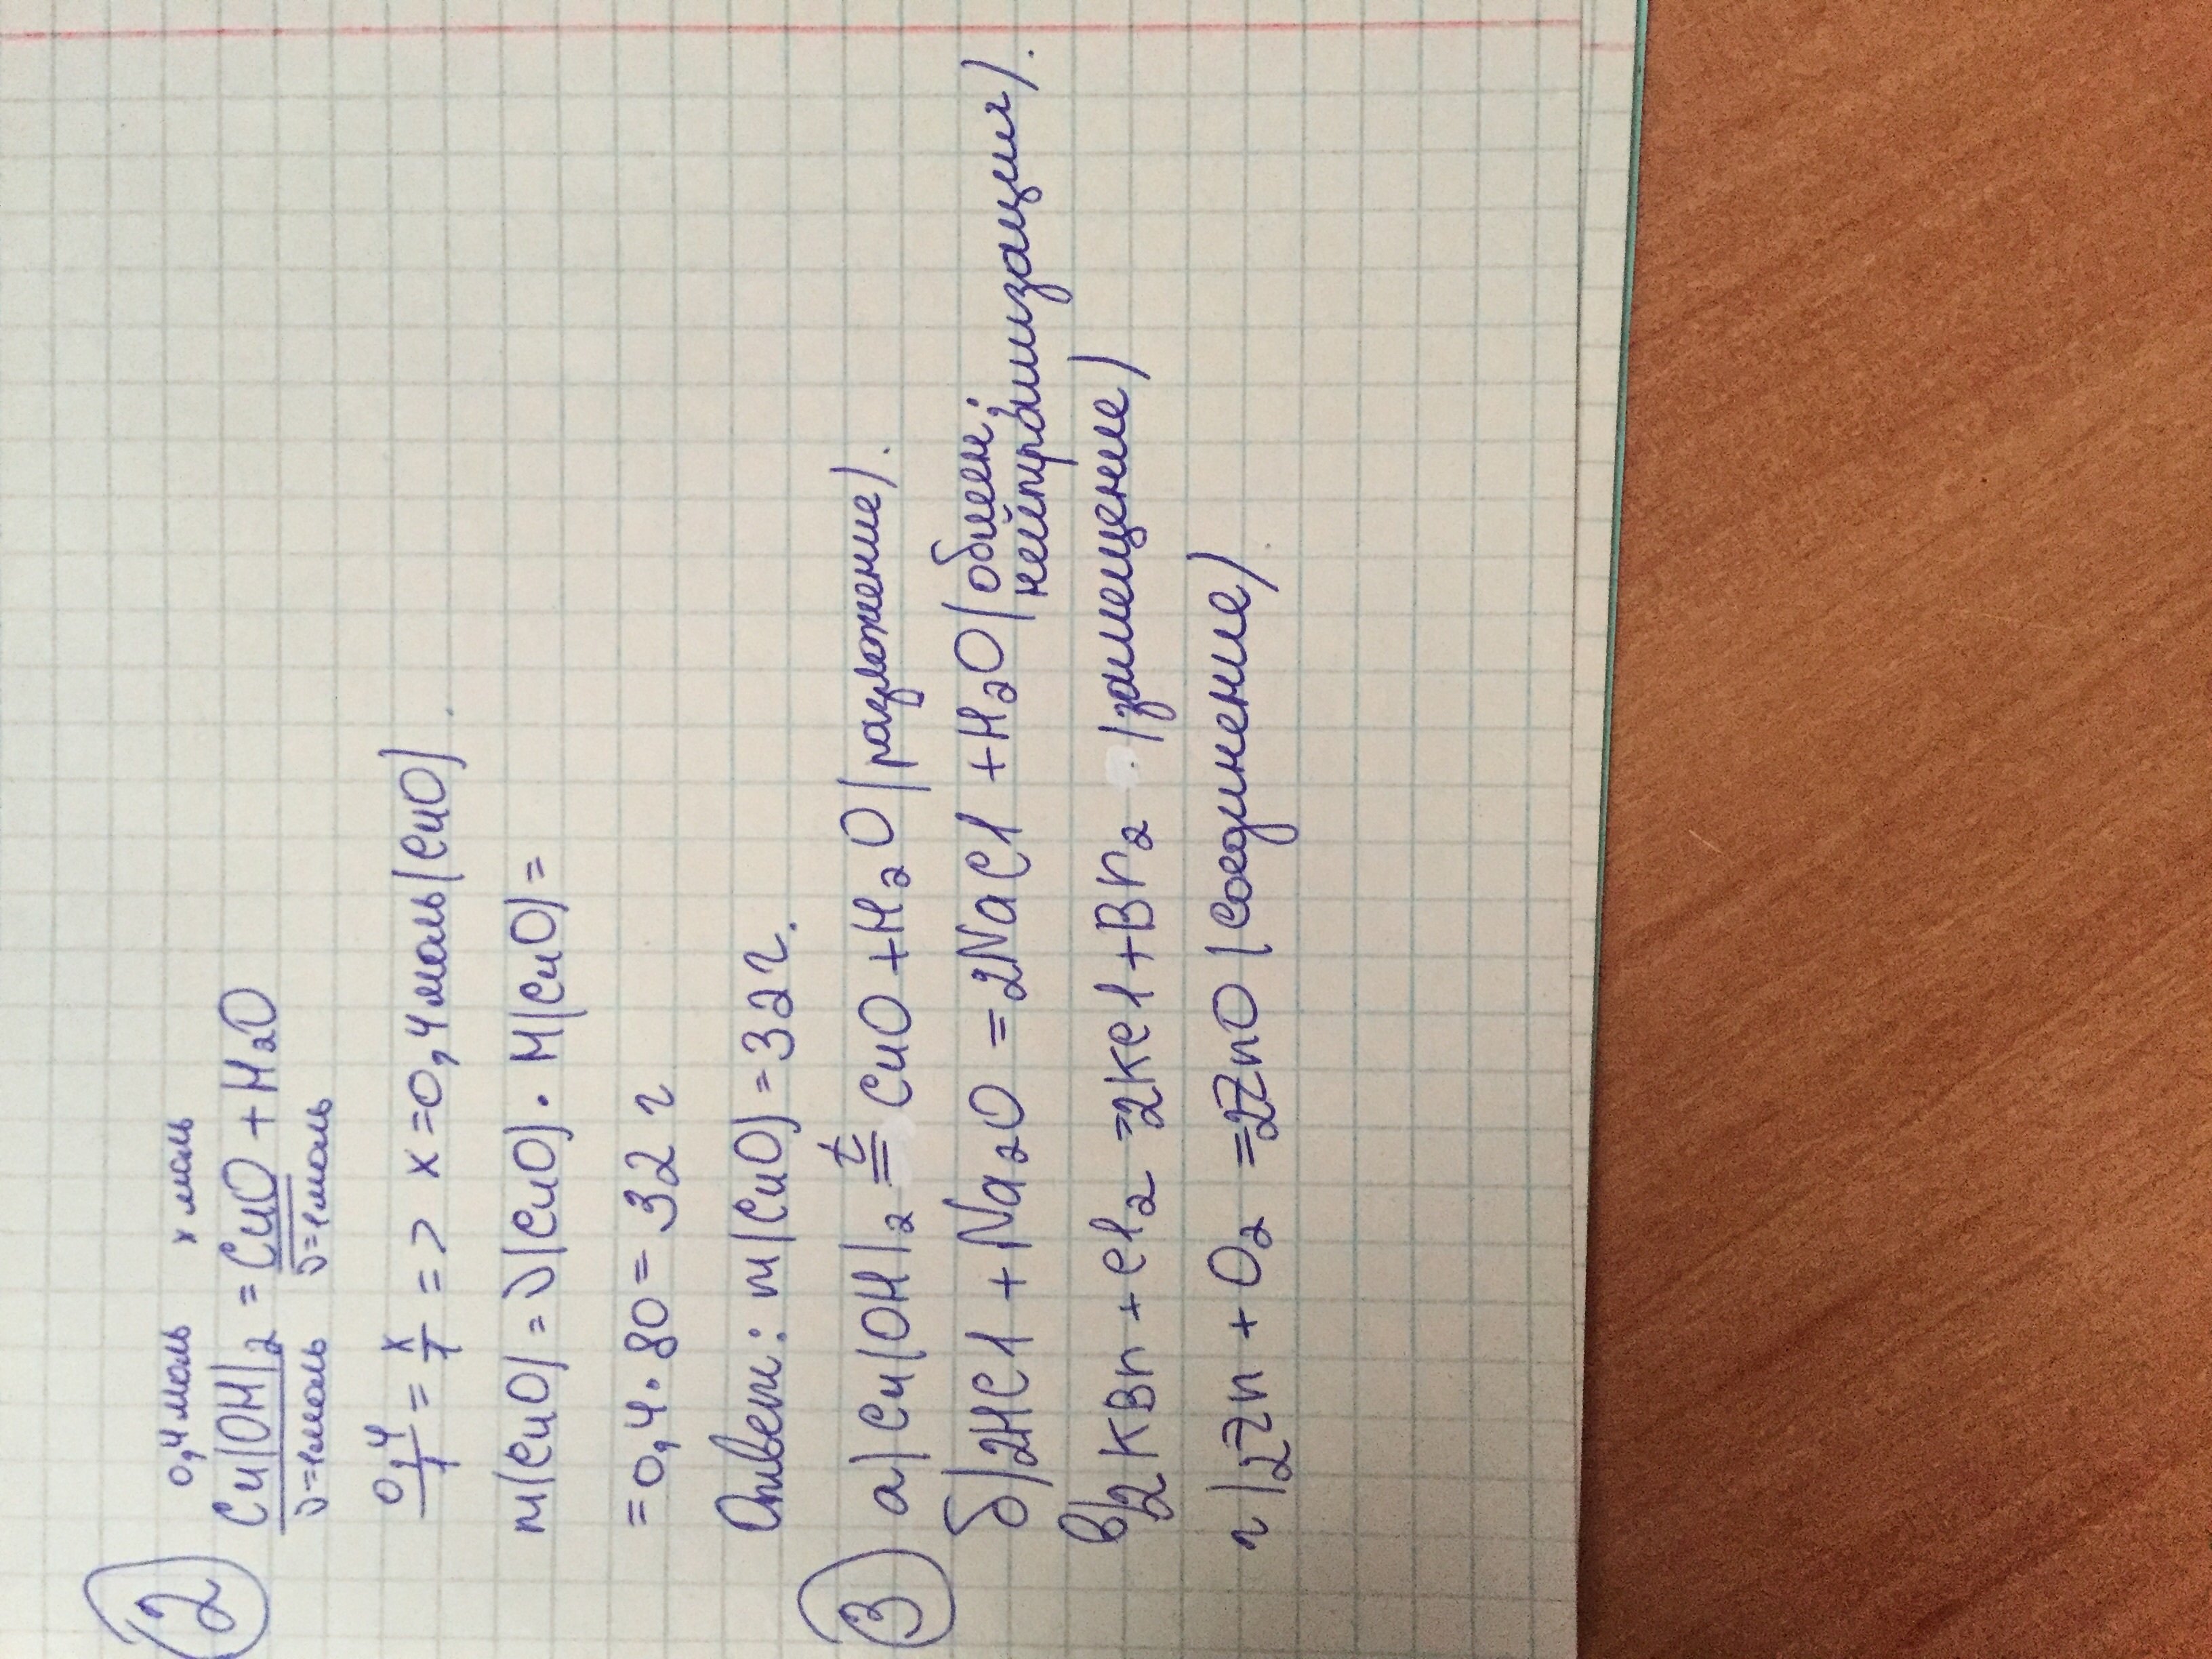 2
0,4 моль x моль
Cu(OH)₂ = CuO + H₂O
ν=1моль ν=1моль
0,4/1 = x/1 => x = 0,4 моль (CuO).
m(CuO) = ν(CuO) · M(CuO) =
= 0,4 · 80 = 32 г
Ответ: m(CuO) = 32 г.
3 а) Cu(OH)₂ =ᵗ CuO + H₂O (разложение).
б) 2HCl + Na₂O = 2NaCl + H₂O (обмен;
нейтрализация).
в) 2KBr + Cl₂ = 2KCl + Br₂ (замещение)
г) 2Zn + O₂ = 2ZnO (соединение)